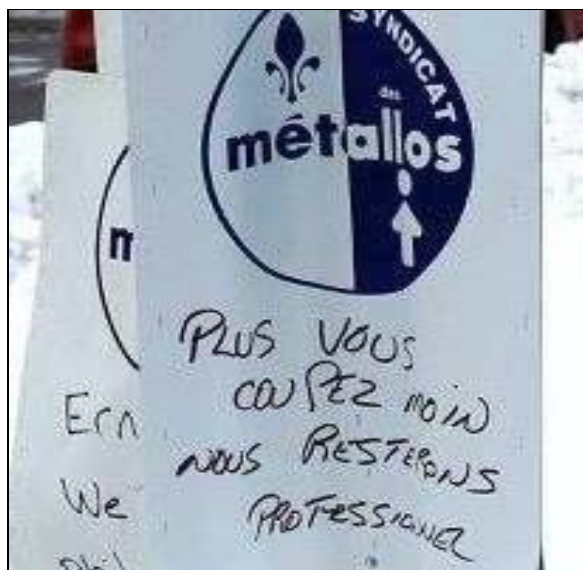 SYNDICAT
des
métallos
PLUS VOUS
COUPEZ MOIN
NOUS RESTERONS
PROFESSIONEL
m
Ern
We